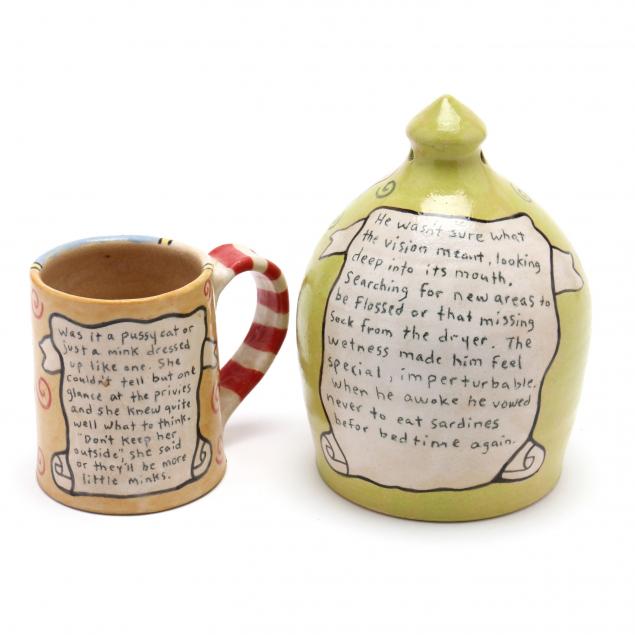 was it a pussy cat or
just a mink dressed
up like one. She
couldn't tell but one
glance at the privies
and she knew quite
well what to think.
"Don't keep her
outside", she said
or they'll be more
little minks.
He wasn't sure what
the vision meant, looking
deep into its mouth.
Searching for new areas to
be flossed or that missing
sock from the dryer. The
wetness made him feel
special, imperturbable.
When he awoke he vowed
never to eat sardines
befor bedtime again.